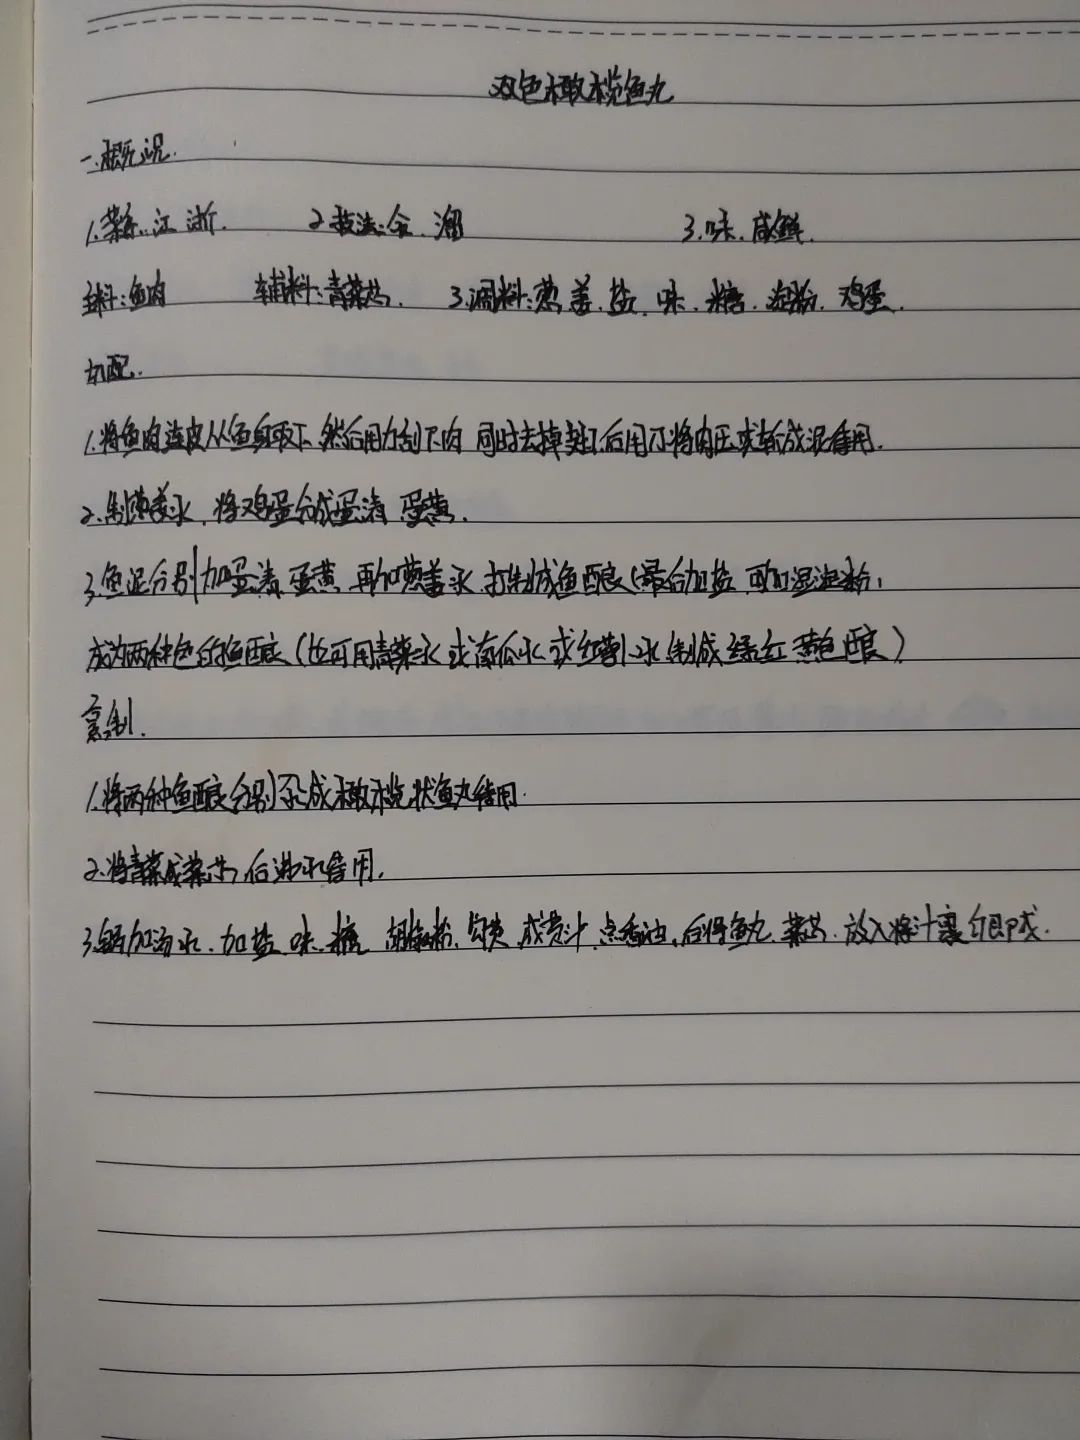 双色橄榄鱼丸
一.概况.
1.菜系:江浙. 2.技法:汆.溜 3.味.咸鲜.
主料:鱼肉 辅料:青菜芯. 3.调料:葱姜.盐.味.糖.淀粉.鸡蛋.
切配.
1.将鱼肉连皮从鱼身取下.然后用刀刮下肉 同时去掉 后用刀将肉压或斩成泥备用.
2.制葱姜水.将鸡蛋分成蛋清 蛋黄.
3.鱼泥分别加蛋清,蛋黄 再加葱姜水 打制成鱼酿(最后加盐 可加湿淀粉,
成为两种色的鱼酿(也可用青菜水 或南瓜水 或红萝卜水 制成绿红黄色酿)
烹制.
1.将两种鱼酿分别汆成橄榄状鱼丸备用.
2.将青菜成菜芯,后沸水备用.
3.锅加汤水.加盐.味.糖 胡椒粉.勾芡 成黄汁.点香油.后将鱼丸.菜芯.放入将汁裹匀即成.